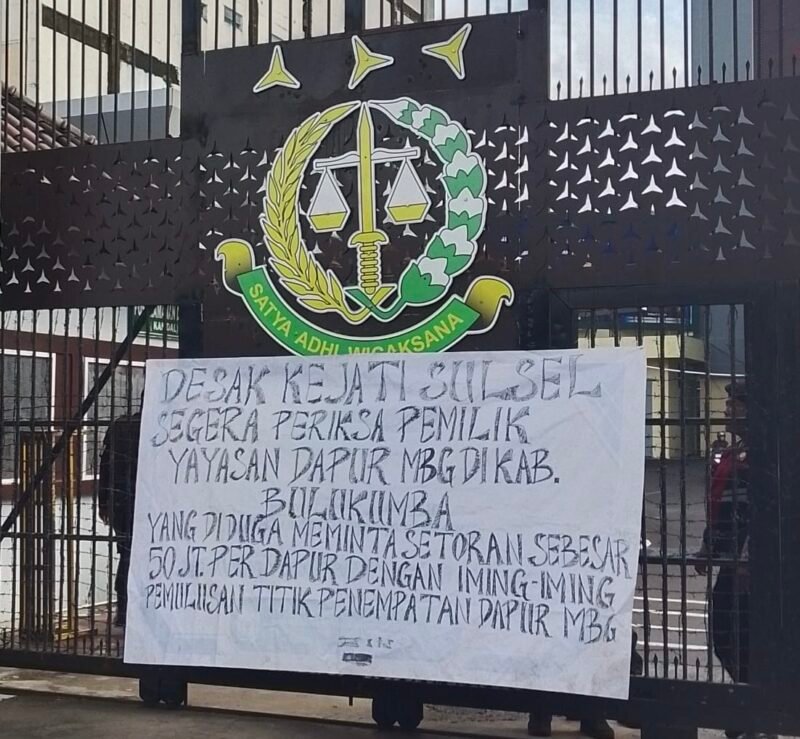 SATYA ADHI WICAKSANA
DESAK KEJATI SULSEL
SEGERA PERIKSA PEMILIK
YAYASAN DAPUR MBG DI KAB.
BULUKUMBA
YANG DIDUGA MEMINTA SETORAN SEBESAR
50 JT. PER DAPUR DENGAN IMING-IMING
PEMULUSAN TITIK PENEMPATAN DAPUR MBG